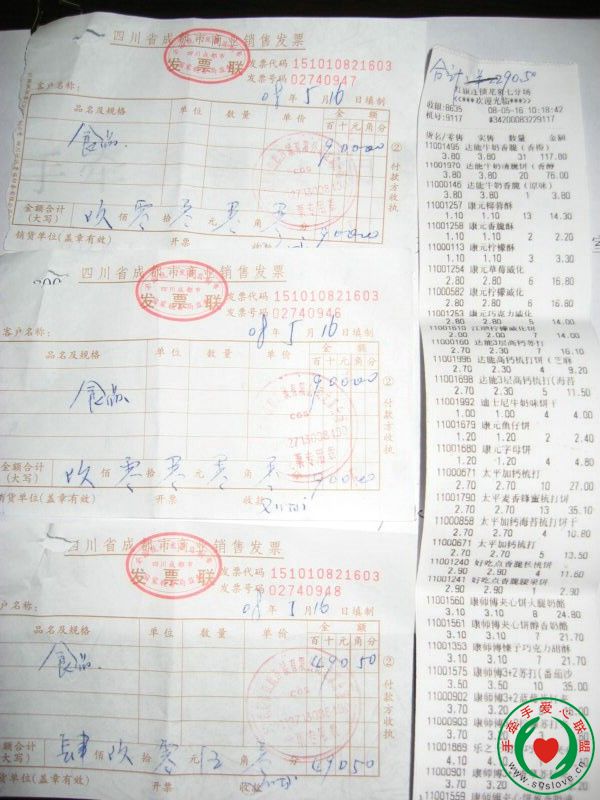 四川省成都市商业销售发票
四川成都市
发票联
发票代码 151010821603
发票号码 02740947
客户名称:
08年5月16日填制
品名及规格 单位 数量 单价 金额
百十元角分
食品 90000
②付款方收执
金额合计(大写) 玖佰零拾零元零角零分 90000
销货单位(盖章有效) 开票 收款
四川省成都市商业销售发票
四川成都市
发票联
发票代码 151010821603
发票号码 02740946
客户名称:
08年5月16日填制
品名及规格 单位 数量 单价 金额
百十元角分
食品 90000
②付款方收执
金额合计(大写) 玖佰零拾零元零角零分 90000
销货单位(盖章有效) 开票 收款
四川省成都市商业销售发票
四川成都市
发票联
发票代码 151010821603
发票号码 02740948
客户名称:
08年5月16日填制
品名及规格 单位 数量 单价 金额
百十元角分
食品 49050
②付款方收执
金额合计(大写) 肆佰玖拾零元伍角零分 49050
销货单位(盖章有效) 开票
合计: 2290.50
红旗连锁龙泉七分场
<<***欢迎光临***>>
收银:8635 08-05-16 10:18:42
机号:9117 #34200083229117
货名/零售 实售 数量 金额
11001495 达能牛奶香脆(香橙)
3.80 3.80 31 117.80
11001970 达能牛奶香脆饼(香醇
3.80 3.80 20 76.00
11000146 达能牛奶香脆(原味)
3.80 3.80 1 3.80
11001257 康元椰蓉酥
1.10 1.10 13 14.30
11001258 康元香脆酥
1.10 1.10 2 2.20
11000113 康元柠檬酥
1.10 1.10 3 3.30
11001254 康元草莓威化
2.80 2.80 6 16.80
11000582 康元柠檬威化
2.80 2.80 6 16.80
11001253 康元巧克力威化
2.80 2.80 5 14.00
2.00 2.00 7 14.00
11000160 达能3层高钙苏打
2.70 2.30 7 16.10
11001996 达能高钙梳打(芝麻
2.70 2.30 4 9.20
11001698 达能3层高钙梳打(海苔
2.70 2.30 5 11.50
11001992 迪士尼牛奶味饼干
1.00 1.00 4 4.00
11001679 康元鱼仔饼
1.20 1.20 2 2.40
11001680 康元字母饼
1.20 1.20 4 4.80
11000671 太平加钙梳打
2.70 2.70 10 27.00
11001790 太平麦香蜂蜜梳打饼
2.70 2.70 13 35.10
11000858 太平加钙海苔梳打饼干
2.70 2.70 4 10.80
11000671 太平加钙梳打
2.70 2.70 5 13.50
11001240 好吃点香脆核桃饼
2.90 2.90 4 11.60
11001241 好吃点香脆腰果饼
2.90 2.90 4 11.60
11001560 康师傅夹心饼大脆奶酪
3.10 3.10 8 24.80
11001561 康师傅夹心饼醇香奶酪
3.10 3.10 7 21.70
11001353 康师傅榛子巧克力甜酥
3.10 3.10 7 21.70
11001575 康师傅3+2苏打(番茄沙
3.50 3.50 10 35.00
11000902 康师傅3+2
3.70 3.20
11000903 康师傅
3.70
11001869 乐之
4.10
11000901 康师傅3+2
3.70
手牵手爱心联盟
www.sqslove.cn